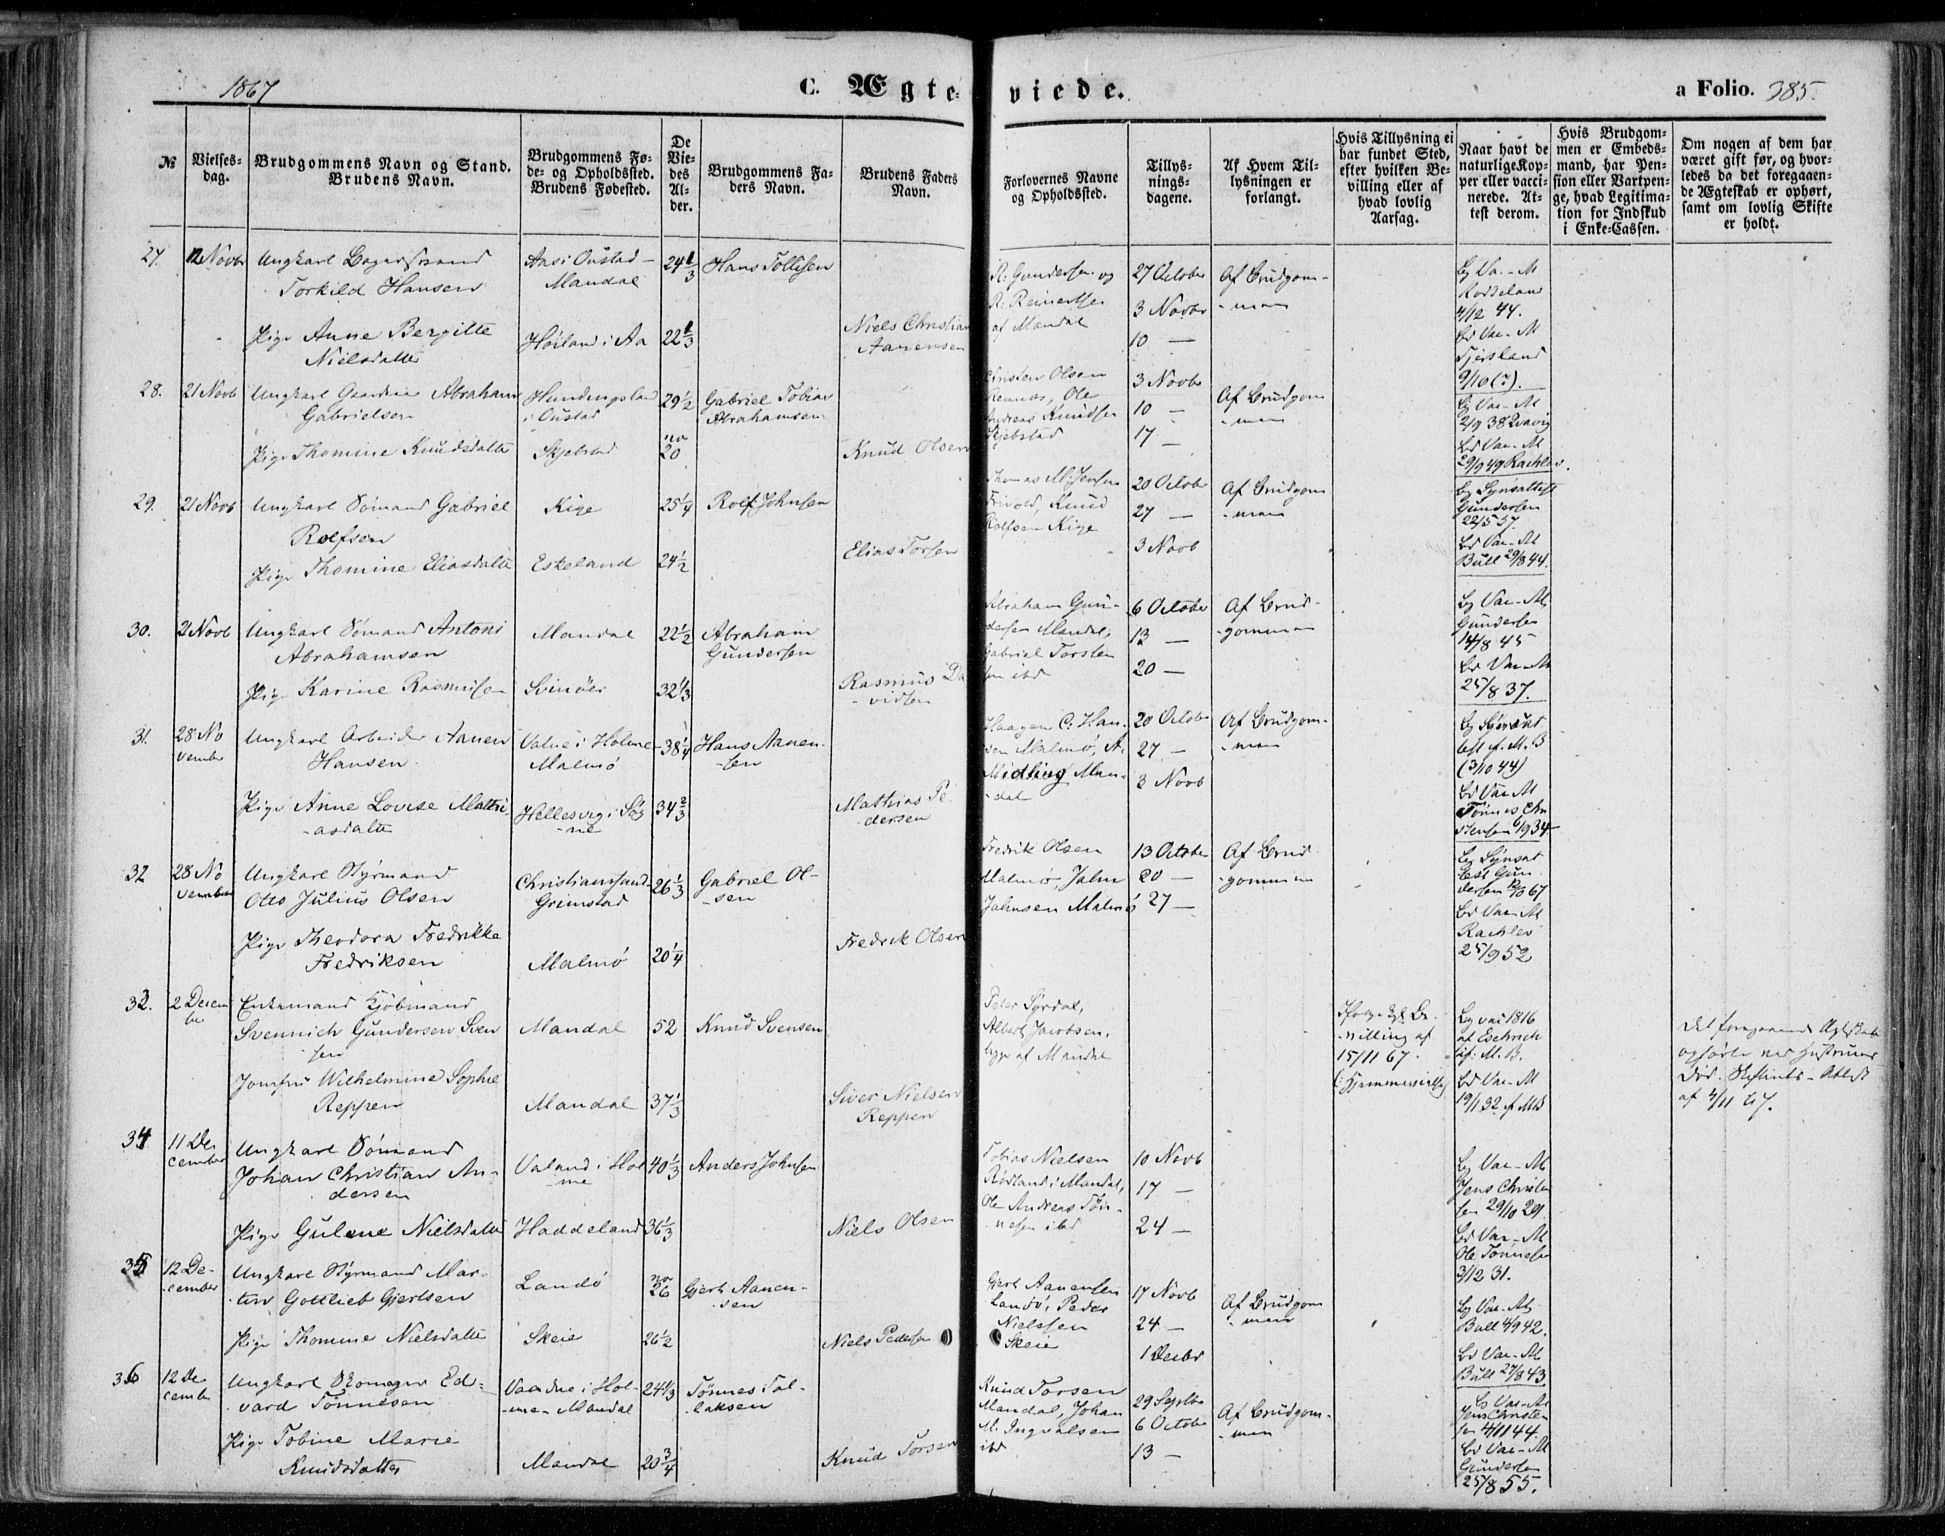 1867
C. Ægteviede.
a Folio. 385.
№
Vielsesdag.
Brudgommens Navn og Stand.
Brudens Navn.
Brudgommens Føde- og Opholdssted.
Brudens Fødested.
De Viedes Alder.
Brudgommens Faders Navn.
Brudens Faders Navn.
Forlovernes Navne og Opholdssted.
Tillysningsdagene.
Af Hvem Tillysningen er forlangt.
Hvis Tillysning ei har fundet Sted, efter hvilken Bevilling eller af hvad lovlig Aarsag.
Naar havt de naturlige Kopper eller vaccinerede. Attest derom.
Hvis Brudgommen er Embedsmand, har Pension eller Vartpenge, hvad Legitimation for Indskud i Enke-Cassen.
Om nogen af dem har været gift før, og hvorledes da det foregaaende Ægteskab er ophørt, samt om lovlig Skifte er holdt.
27. 12 Novbr Ungkarl
Torkild Hansen
Mandal 24 1/3 Hans Tollisen
R. Gundersen og
R. Reinertsen
af Mandal
27 October
3 Novbr
10 —
Af Brudgom-
-men
Bg Vac-At
4/12 44.
Pige Anne Bergitte
Nielsdatter
Høiland i Aa 22 1/3 Niels Christian
Aanensen
Bd Vac-At
9/10 (?).
28. 21 Novb Ungkarl Gaardmd Abraham
Gabrielsen
29 1/2 Gabriel Tobias
Abrahamsen
Christen Olsen
Ole
Andreas Knudsen
Skjebstad
3 Novbr
10 —
17 —
Af Brudgom
-men
Bg Vac-At
2/9 38
Pige Thomine Knudsdatter Skjebstad 20 Knud Olsen
Bd Vac-At
29/9 49
29. 21 Novb Ungkarl Sømand Gabriel
Rolfsen
Kige 25 1/4 Rolf Johnsen
Knud
Rolfsen Kige
20 October
27 —
3 Novb
Af Brudgom
-men
Bg Synsattest
Gundersen
22/5 57.
Pige Thomine Eliasdatter Eskeland 24 1/2 Elias Torsen
Bd Vac-At
Bull 29/8 44.
30. 21 Novb Ungkarl Sømand Antoni
Abrahamsen
Mandal 22 1/2 Abraham
Gundersen
Abraham Gun-
dersen Mandal,
Gabriel Torsten
sen ibd
6 October
13 —
20 —
Af Brud-
-gommen
Bg Vac-At
Gundersen
14/8 45
Pige Karine Rasmusen Svinøer 32 1/3 Rasmus Da
-vidsen
Bd Vac-At
25/8 37.
31. 28 No
vember
Ungkarl Arbeider Aanen
Hansen
Valne i Holme-
Malmø
38 1/4 Hans Aanen-
-sen
Haagen C. Han-
sen Malmø, A.
Midling Man-
-dal
20 October
27 —
3 Novb
Af Brudgom-
-men
(3/10 44)
Pige Anne Lovise Mathi-
-asdatter
Hellesvig i Søg
ne
34 2/3 Mathias Pe
-dersen
Bd Vac At
Tønnes Chri
stensen
32 28 No
vember
Ungkarl Styrmand
Otto Julius Olsen
Christianssand
Grimstad
26 1/3 Gabriel Ol-
-sen
Fredrik Olsen
Malmø, John
Johnsen Malmø
13 October
20 —
27 —
Af Brud
-gommen
Bg Synsat
test Gun
dersen 12/10 67
Pige Theodora Fredrikke
Fredriksen
Malmø 20 1/4 Fredrik Olsen
Bd Vac-At
25/9 52
33. 2 Decem
ber
Enkemand Kjøbmand
Svennich Gundersen Sven
sen
Mandal 52 Knud Svensen
Peter Sørdal,
Albert Jacobsen,
begge af Mandal
Ifølge Kgl. Be-
-villing af
15/11 67.
(Hjemmevielse)
Bg vac 1816
af Eschrich
if: M.B.
Det foregaaende Ægteskab
ophørte ved Hustruens
Død. Skifterets-Attest
af 4/11 67.
Jomfru Wilhelmine Sophie
Reppen
Mandal 37 1/3 Siver Nielsen
Reppen
Bd Vac-At
19/1 32 if MB
34 11 De
cember
Ungkarl Sømand
Johan Christian An-
dersen
Valand i Hol
-me
40 1/3 Anders Johnsen
Tobias Nielsen
Rødland i Mandal,
Ole Andreas Tøn-
-nesen ibd
10 Novb
17 —
24 —
Bg Vac-At
Jens Christen
sen 29/10 29.
Pige Gulene Nielsdatter Haddeland 36 1/3 Niels Olsen
Bd Vac-At
Ole Tønnesen
3/12 31.
35 12 De-
cember
Ungkarl Styrmand Mar-
tin Gottlieb Gjertsen
Landø 26 Gjert Aanen-
-sen
Gjert Aanensen
Landø, Peder
Nielssen
Skeie
17 Novb
24 —
1 Decbr
Af Brudgom
-men
Bg Vac-At
Bull 4/9 42.
Pige Thomine Nielsdatter Skeie 26 1/2 Niels Pedersen
Bd Vac-At
Bull 27/8 43.
36 12 De
cember
Ungkarl Skomager Ed-
vard Tønnesen
Hol-
-me- Mandal
24 1/3 Tønnes Tol-
-laksen
Knud Torsen
Mandal, Johan
M. Ingvalsen
ibd
29 Septbr
6 October
13 —
Af Brudgom-
-men
Bg Vac-At
Jens Christen
sen 4/11 44.
Pige Tobine Marie
Knudsdatter
Mandal 20 3/4 Knud Torsen
Bd Vac-At
Gundersen
25/8 55.